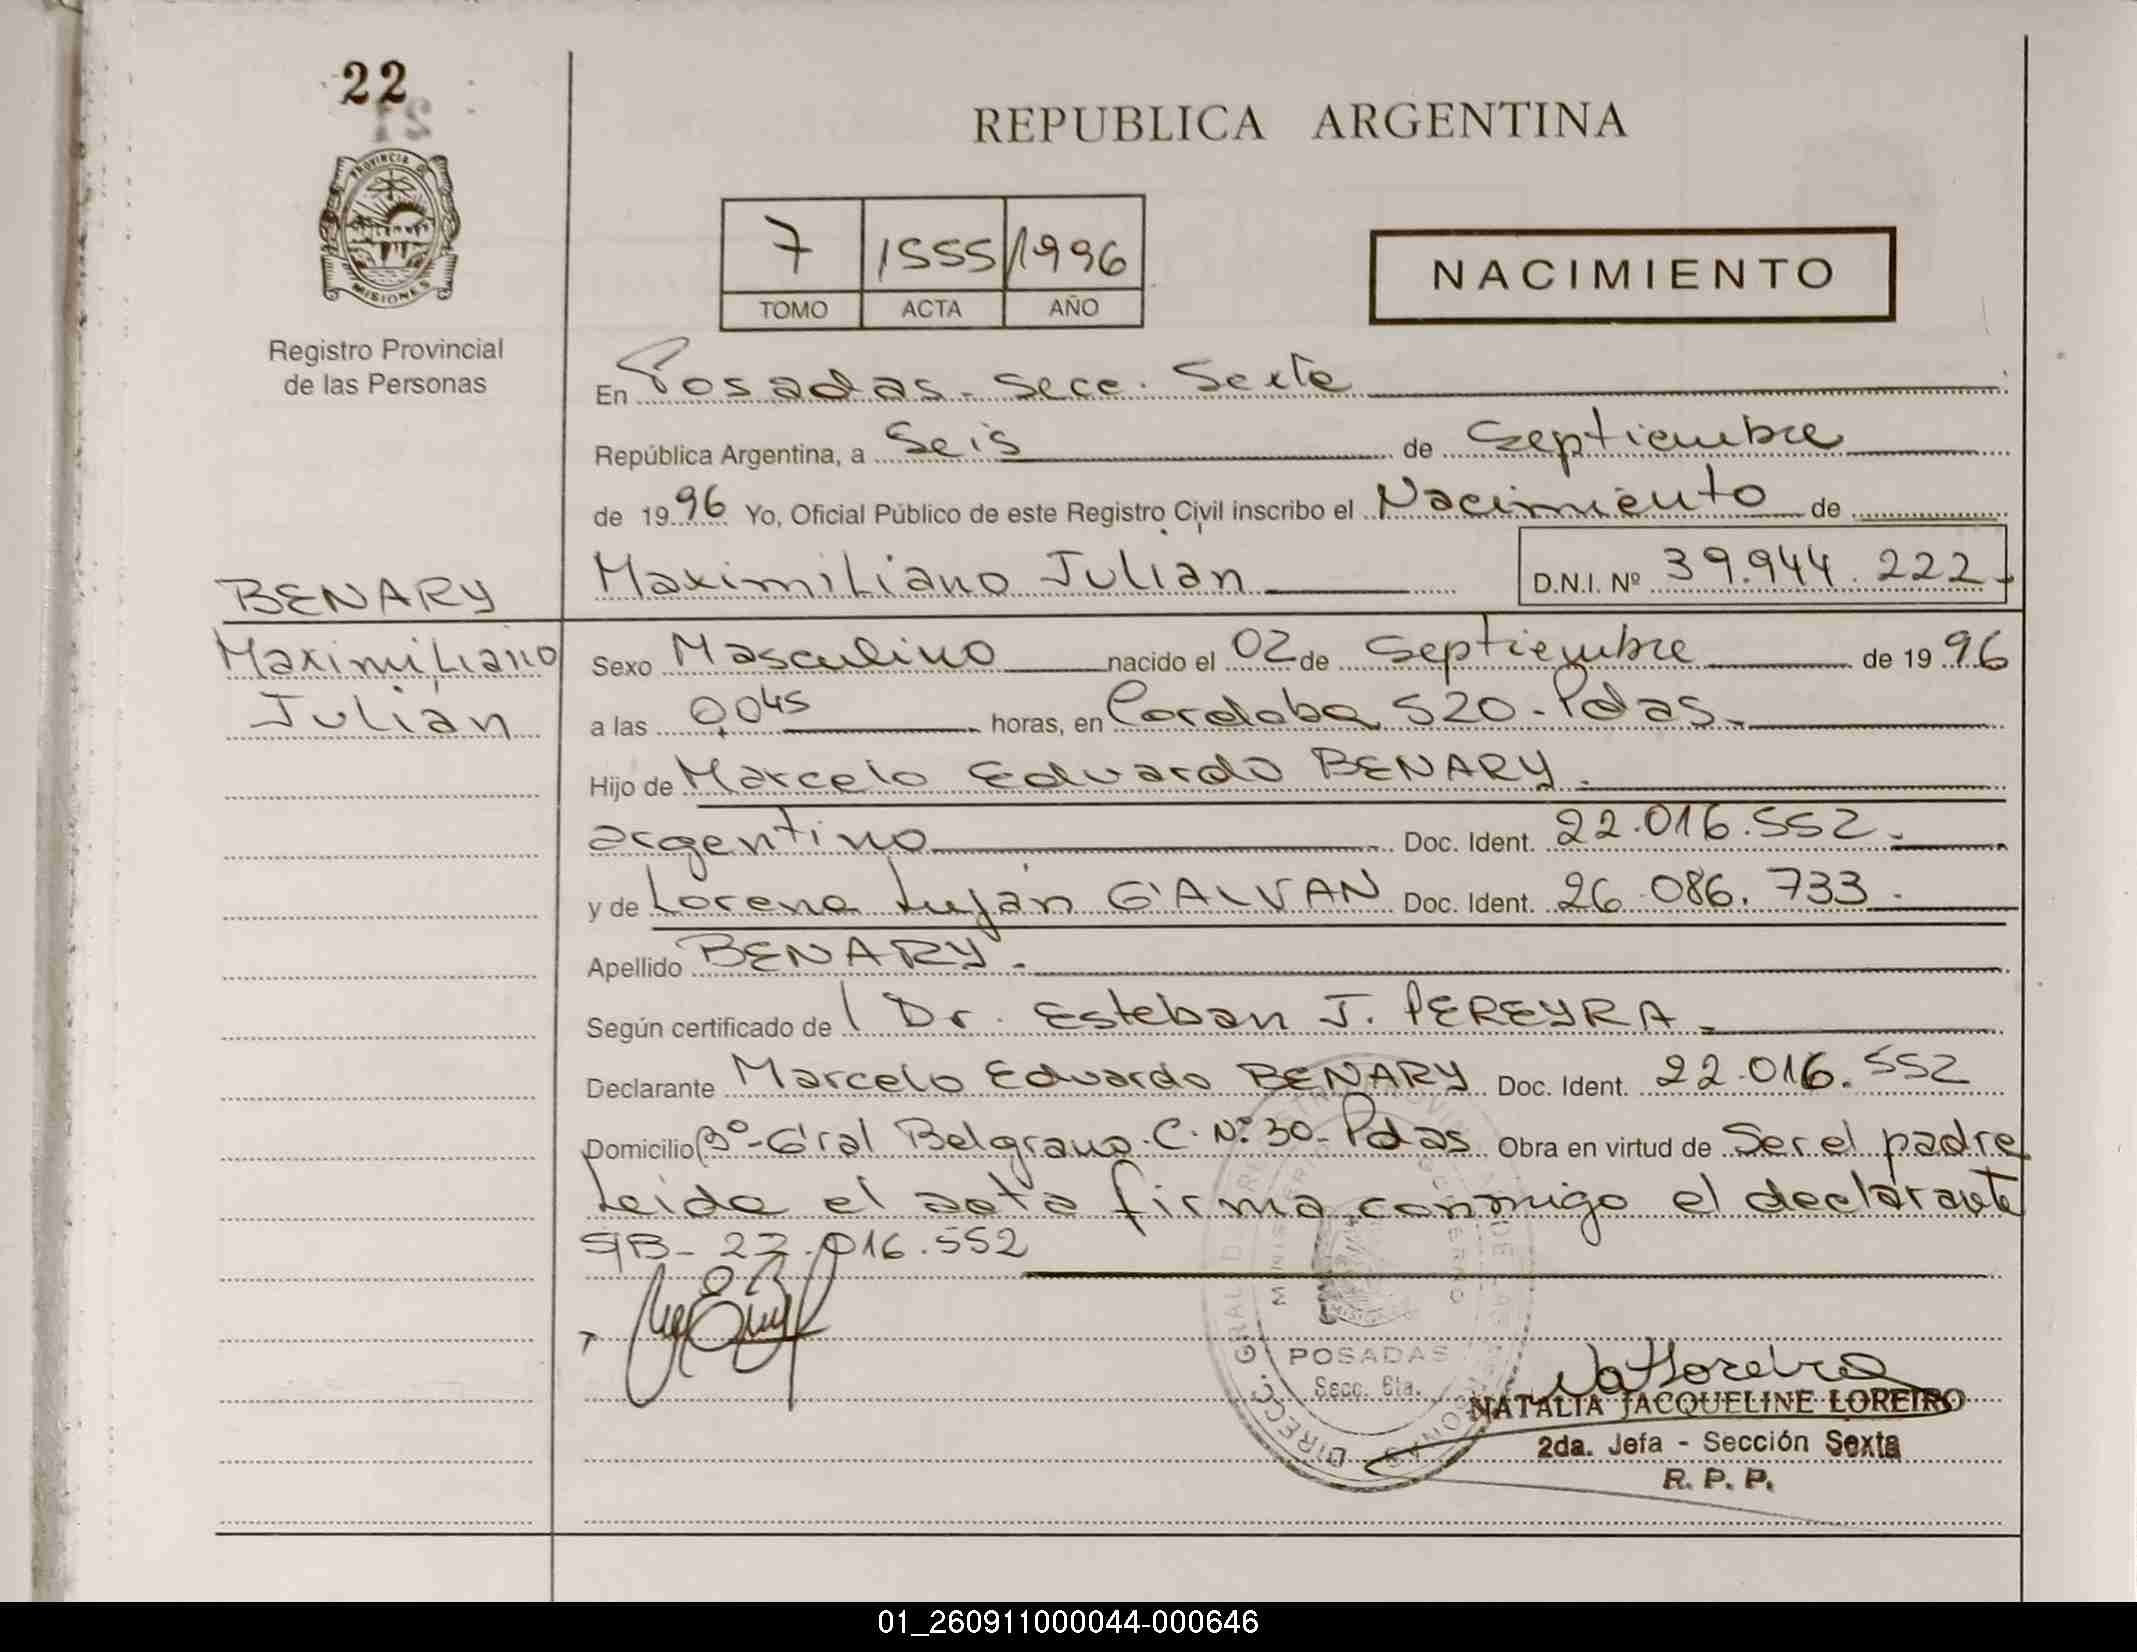 22
PROVINCIA
MISIONES
Registro Provincial
de las Personas
REPUBLICA ARGENTINA
7 1555 1996
TOMO ACTA AÑO
NACIMIENTO
En Posadas - Secc. Sexta
República Argentina, a Seis de Septiembre
de 1996 Yo, Oficial Público de este Registro Civil inscribo el Nacimiento de
Maximiliano Julián D.N.I. Nº 39.944.222
BENARY
Maximiliano
Julián
Sexo Masculino nacido el 02 de Septiembre de 1996
a las 0045 horas, en Cordoba 520 - Pdas.
Hijo de Marcelo Eduardo BENARY.
argentino Doc. Ident. 22.016.552.
y de Lorena Luján GALVAN Doc. Ident. 26.086.733.
Apellido BENARY.
Según certificado de Dr. Esteban J. PEREYRA.
Declarante Marcelo Eduardo BENARY Doc. Ident. 22.016.552
Domicilio Bº- Gral Belgrano. C. Nº 30 - Pdas Obra en virtud de Ser el padre
Leida el acta firma conmigo el declarante
S/B - 22.016.552
POSADAS
Secc. 6ta.
NATALIA JACQUELINE LOREIRO
2da. Jefa - Sección Sexta
R. P. P.
01_260911000044-000646